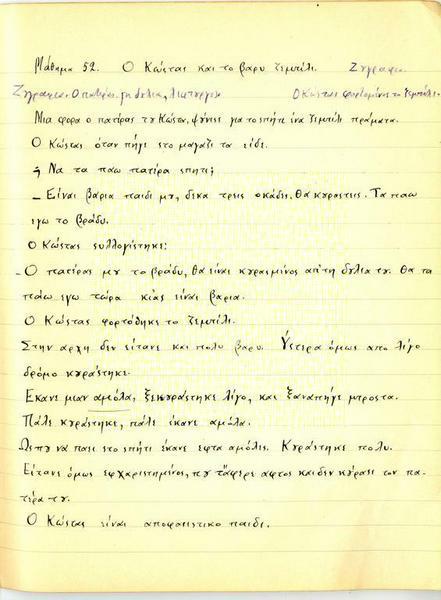 Μάθημα 52. Ο Κώστας και το βαρυ ζεμπίλι. Ζυγραφια.
Ζυγραφια. Ο πατέρας τη δυλια, λιτυργει Ο Κώστας φορτομένος το ζεμπίλι.
Μια φορα ο πατέρας τυ Κώστα, ψόνισε για το σπήτι ένα ζεμπίλι πράματα.
Ο Κώστας όταν πήγε στο μαγαζι τα είδε.
– Να τα πάω πατέρα σπητι;
– Είναι βάρια παιδι μυ, δεκα τρεις οκάδες, θα κυραστεις. Τα παω
εγω το βράδυ.
Ο Κώστας συλλογίστηκε:
– Ο πατέρας μυ το βράδυ, θα είναι κυρασμένος απ'τη δυλια τυ. Θα τα
πάω εγω τώρα κιας είναι βαρια.
Ο Κώστας φορτόθηκε το ζεμπίλι.
Στην αρχη δεν είτανε και πολυ βαρυ. Ύστερα όμως απο λίγο
δρόμο κυράστηκε.
Έκανε μιαν αμόλα, ξεκυράστηκε λίγο, και ξαναπήγε μπροστα.
Πάλε κυράστηκε, πάλε έκανε αμόλα.
Ώσπυ να παει στο σπήτι έκανε εφτα αμόλες. Κυράστηκε πολυ.
Είτανε όμως εφχαριστημένος, πυ τάφερε αφτος και δεν κύρασε τον πα-
τέρα τυ.
Ο Κώστας είναι αποφασιστικο παιδι.